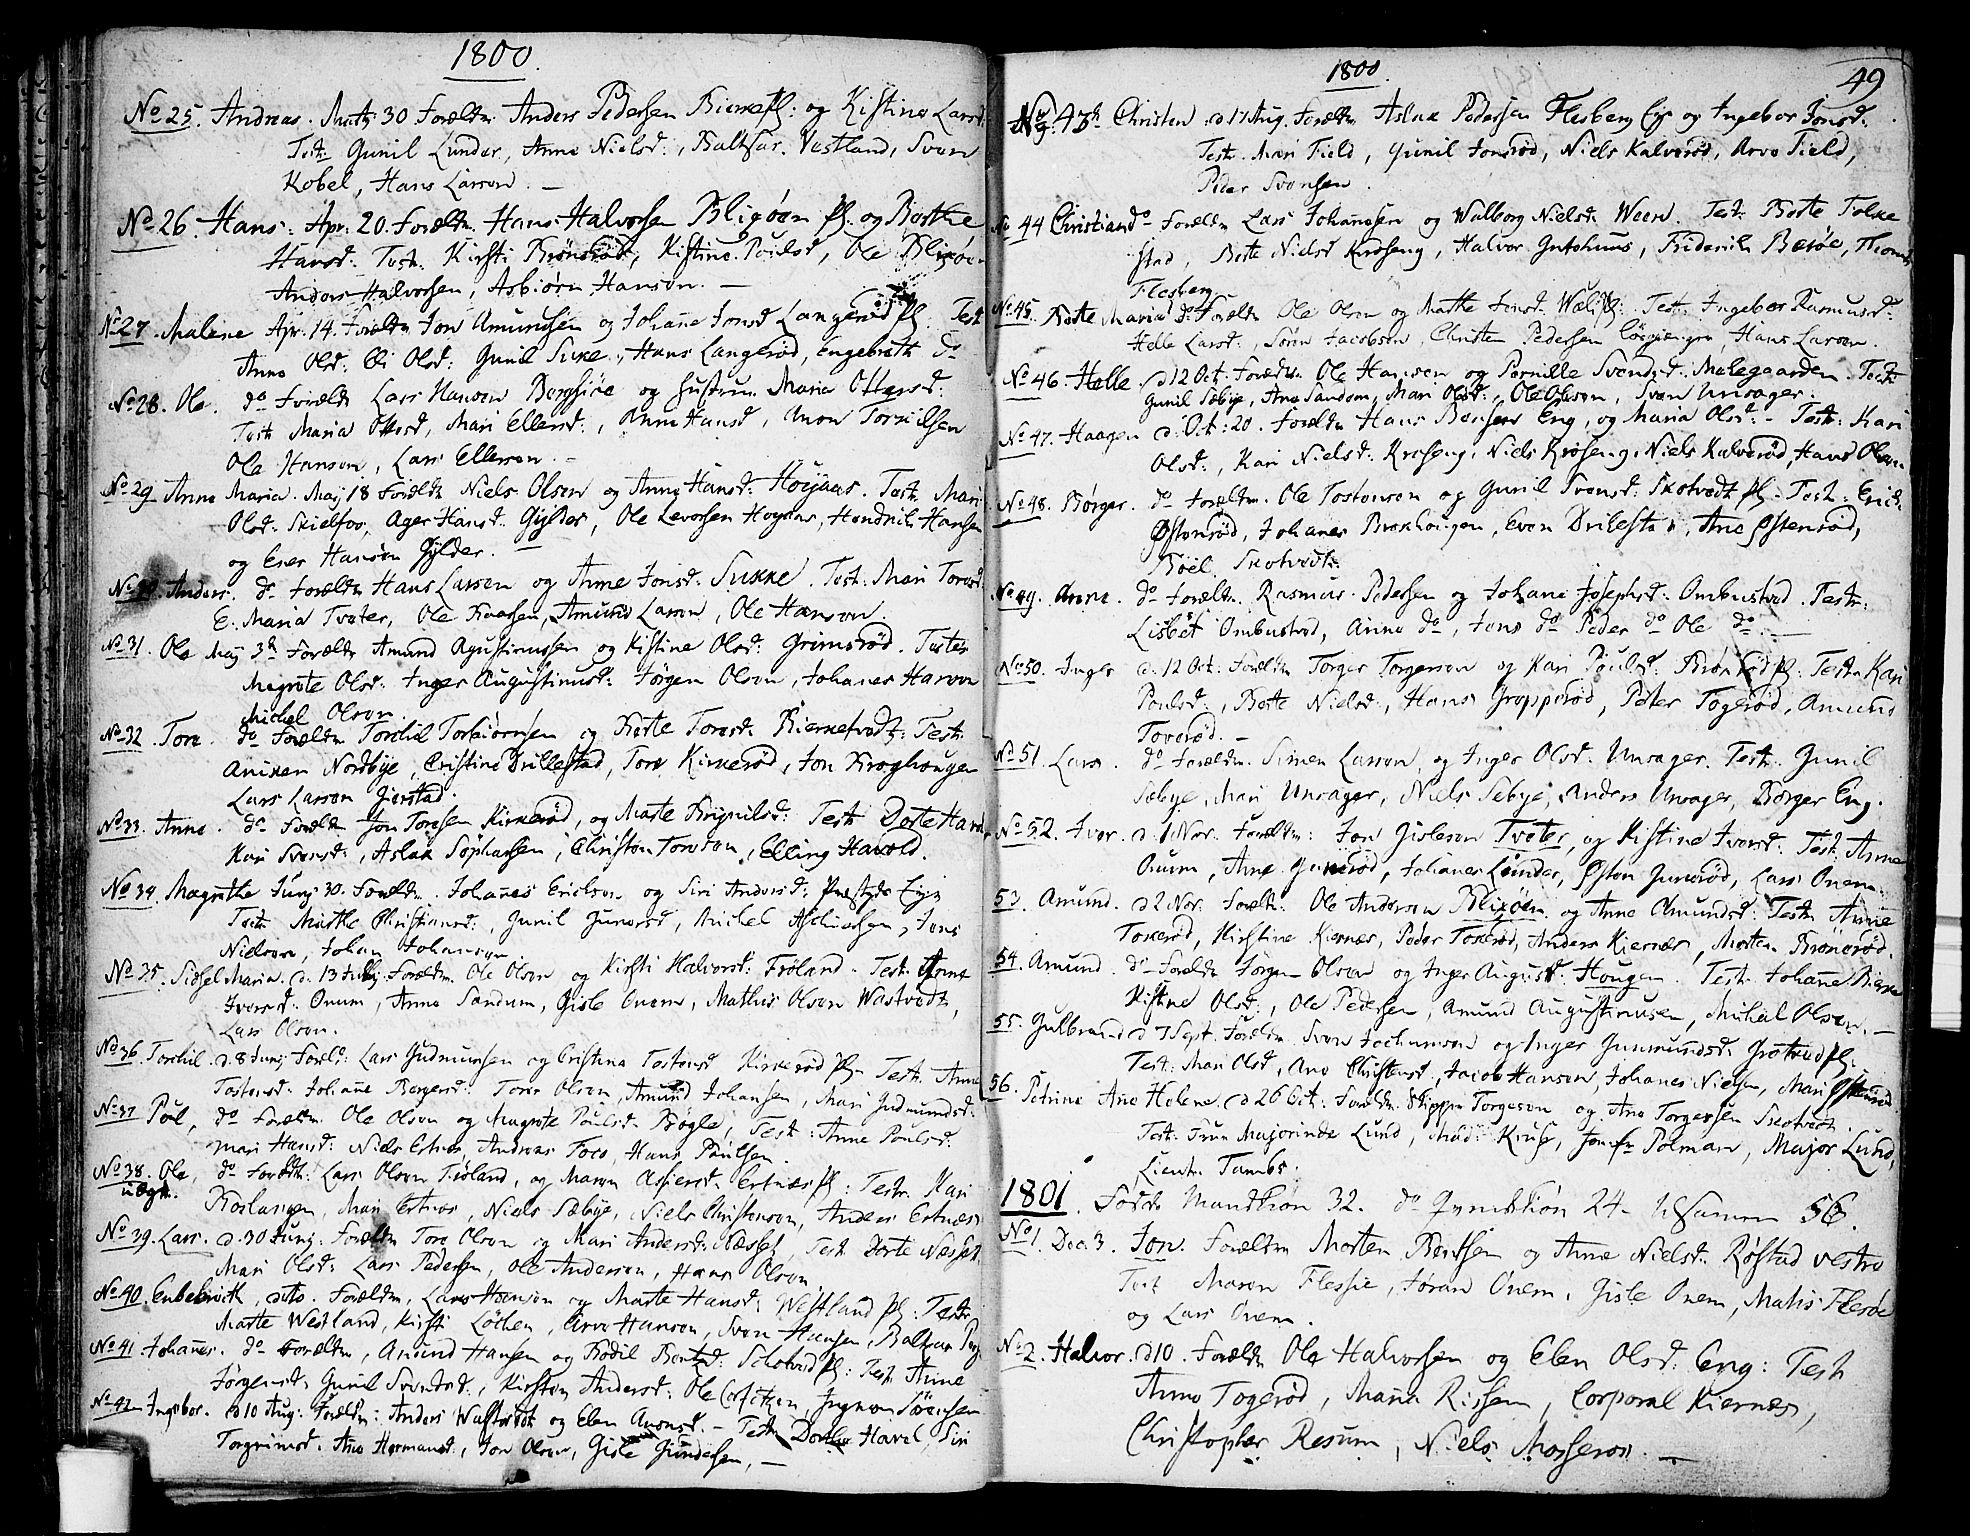 1800.
No 25. Andreas. Martz 30 Forældr Anders Pedersen Bierke pl: og Kistine Larsd:
Test: Gunil Lunder, Anne Nielsd:, Baltsar Vestland, Sven
Kobel, Hans Larsen. —
No 26. Hans. Apr: 20. Forældr. Hans Halvorsen Bligøen pl. og Berthe
Hansd: Test. Kirsti Brønerød, Kistine Poulsd, Ole Bligøen
Anders Halvorsen, Asbiørn Hansen. —
No 27. Malene Apr. 14. Forældr Jon Amundsen og Johane Jonsd Langerød pl. Test
Anne Olsd: Eli Olsd: Gunil Sukke, Hans Langerød, Engebreth do
No 28. Ole. do Forældr Lars Hansen og Hustrue Maria Ottersd:
Test Maria Ottersd, Mari Ellensd:, Anne Hansd, Torkildsen
Ole Hansen, Lars Ellensen. —
No 29 Anne Maria. Maj 18 Forældr Niels Olsen og Anne Hansd: Høyaas. Test. Mari
Olsd: Skielfoe, Ager Hansd. Gylder, Ole Levorsen Høyaas, Hendrik Hansen
og Ener Hansen Gylder. —
No 30 Anders. do Forældr Hans Larsen og Anne Jonsd: Sukke. Test. Mari Toresd:
E. Maria Tveter, Ole Amund Larsen, Ole Hansen.
No 31. Ole Maj 3 Forældr Amund Agustinussen og Kistine Olsd: Grimsrød. Testes
Magrete Olsd. Inger Augustinusd: Jørgen Olsen, Johanes Hansen
Michel Olsen.
No 32. Tore. do Forældr Torchil Torbiørnsen og Berte Toresd: Bierketvedt: Test:
Aniken Nordbye, Cristine Drillestad, Tore Kirkerød, Jon Kroghougen
Lars Larsen Gierstad.
No 33. Anne. do Forældr Jon Toresen Kirkerød, og Marte Test Dorte
Kari Svensd:, Aslak Sophussen, Christen Torsten, Elling Havold.
No 34. Magrethe Junj 30. Forældr. Johannes Ericksen og Siri Andersd: Eje
Test Marthe Christiansd:, Gunil Junerød, Michel, Jens
Nielsen, Johan Johansen
No 35. Sidsel Maria. d. 13 Julj: Forældr. Ole Olsen og Kirsti Halvorsd: Frøland. Test: Anne
Iversd: Onum, Anne Sandum, Gisle Onem, Mathis Olsen Wastvedt,
Lars Olsen.
No 36 Torchil. d. 8 Junj Forældr: Lars Gudmunsen og Cristina Tostensd Kirkerød pl. Test. Anne
Tostensd. Johane Borgersd: Torer Olsen, Amund Johansen, Mari Gudmundsd:
No 37 Poul, do Forældr Ole Olsen og Magrete Poulsd: Bøgle, Test: Anne Poulsd:
Mari Hansd: Niels Ertnes, Andreas Foss, Hans Poulsen.
No 38. Ole, do Forældr: Lars Olsen Frøland, og Maren Ertnes pl: Testr. Kari
uægte. Mari Ertnes, Niels Sæbye, Niels Christensen, Anders Ertnes
No 39. Lars. d. 30 Junj: Forældr Tore Olsen og Mari Andersd: Næsset, Test Dorte Næsset
Mari Olsd: Lars Pedersen, Ole Andersen, Hans Olsen.
No 40. Enbebreth, dito. Forældr, Lars Hansen og Marte Hansd: Westland pl: Test,
Marte Westland, Kirsti Løchen, Arve Hansen, Sven Hansen, Baltsar
No 41. Johannes. do Forældr, Amund Hansen og Bodil Bentsd: Schotved pl: Test: Anne
Jørgensd: Gunil Svendsd:, Kirsten Andersd: Ole, Jngvor Sørensen
No 42 Ingebor. d. 10 Aug: Forældr: Anders Wastvedt og Elen — Test Dorthe Havel, Siri
Torgrimsd. Ane Hermansd:, Jon Olsen, Gisle Gundersen, —
1800.
49
No 43. Christen. d. 17 Aug. Forældr Aslak Pedersen Flesberg Eje og Ingebor Jonsd:
Test. Mari Field, Gunil Jonsrød, Niels Kalverød, Arve Field,
Peder Svensen.
No 44 Christian do Forældr Lars Johannsen og Walborg Nielsd: Weern. Test: Berte Tolke
stad, Berte Nielsd Krøseng, Halvor Gutehuus, Friderich Berøe, Thomas
Flesberg.
No 45. Berte Maria do Forældr Ole Olsen og Marthe Jonsd: Test: Ingebor Rasmusd:
Helle Larsd:, Søren Jacobsen, Christen Pedersen Hans Larsen.
No 46. Helle d. 12 Oct: Forældr. Ole Hansen og Pernille Svendsd: Melegaarden. Test
Gunil Sæbye, Ane Sandom, Mari Olsd:, Ole Olsen, Sven Unsager.
No 47. Haagen d. Oct: 20. Forældr Hans Bensen Eng, og Maria Olsd: — Test: Kari
Olsd:, Kari Nielsd: Krøseng, Niels Krøseng, Niels Kalverød, Hans Olsen
No 48. Børger. do Forældr. Ole Tostensen og Gunil Svensd: Skotvedt pl. Test: Erick
Østenrød, Johanes Brekhougen, Even Drillestad, Ane Østenrød,
Bøel Skotvedt.
No 49. Anne. do Forældr. Rasmus Pedersen og Johane Josephsd: Ombustved. Testr:
Lisbet Ombustved, Anne do, Jens do Peder do Ole do —
No 50. Inger d. 12 Oct: Forældr Torger Torgersen og Kari Poulsd: Brønerød pl: Test Kari
Poulsd:, Berte Nielsd:, Hans Gropperød, Peter Togerød, Amund
Toverød. —
No 51. Lars. do Forældr. Simen Larsen og Inger Olsd: Unsager. Test. Gunil
Sæbye, Mari Unsager, Niels Sebye, Anders Unsager, Børger Eng.
No 52. Iver. d. 1 Nov. Forældr: Jon Gislesen Tveter, og Kistine Iversd: Test. Anne
Onum, Ane Junerød, Johanes Lunder, Østen Junerød, Lars Onem.
53. Amund. d 2 Nov. Forældr: Ole Andersen Bligøen og Anne Amundsd: Test: Anne
Tokerød, Kirstine Kiernes, Peder Tokerød, Anders Kiernes, Morten Brønerød.
54. Amund. do Forældr Jørgen Olsen og Inger August: Hougen. Test: Johane Bierke
Kistine Olsd:, Ole Pedersen, Amund Augustinusen, Michel Olsen. —
55. Gulbrand d 7 Sept. Forældr. Sven Jochumsen og Inger Gunmundsd: pl.
Test: Mari Olsd, Ane Christensd, Jacob Hansen, Johanes Nielsen, Mari Østenrød
56. Petrine Ane Helene. d 26 Oct: Forældr. Skipper Torgesen og Ane Torgersen Skotvedt.
Test: Frue Majorinde Lund, Mad: Kruse, Jomfr Polman, Major Lund,
Lieutn. Tambs.
1801. Fødde Mandkiøn 32. do Qvindkiøn 24 — Summ 56.
No 1. Dec. 3. Jon. Forældr Morten Berthsen og Anne Nielsd. Røstad vestre
Test Maren Flessie, Søren Onem, Gisle Onem, Matis Flesøe
og Lars Onem.
No 2. Halvor. d 10. Forældr Ole Halvorsen og Elen Olsd: Eng: Test
Anne Togerød, Maria Rissem, Corporal Kiernes,
Christopher Resum, Niels Mosserou. —